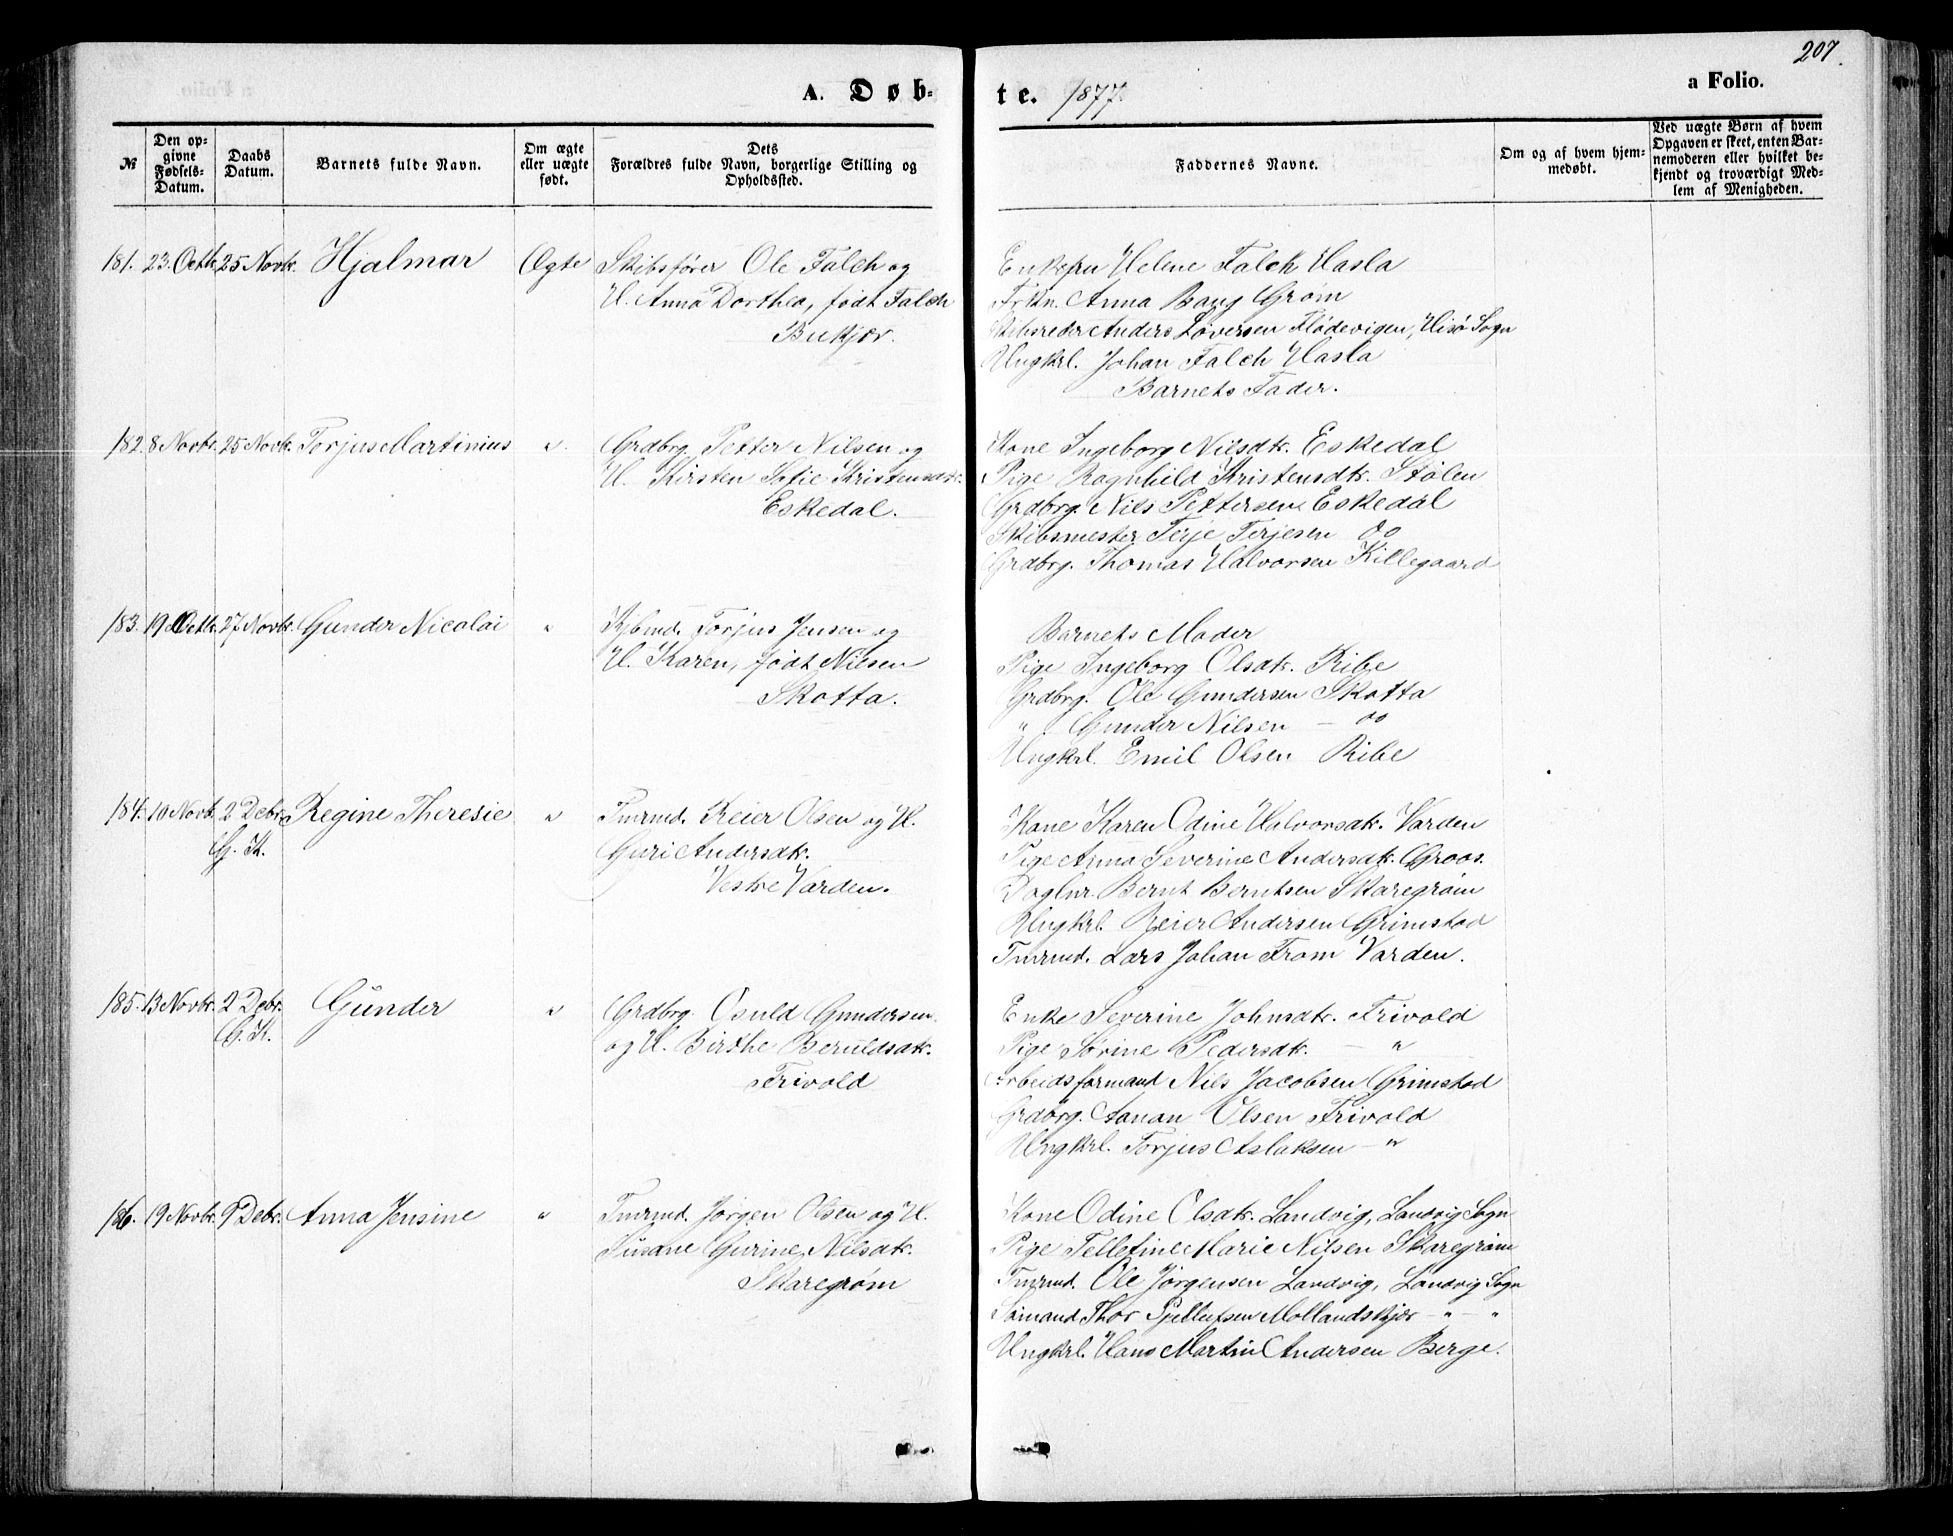 207.
A. Døb-
te. 1877.
a Folio.
№
Den op-
givne
Fødsels-
Datum.
Daabs
Datum.
Barnets fulde Navn.
Om ægte
eller uægte
født.
Dets
Forældres fulde Navn, borgerlige Stilling og
Opholdssted.
Faddernes Navne.
Om og af hvem hjem-
medøbt.
Ved uægte Børn af hvem
Opgaven er skeet, enten Bar-
nemoderen eller hvilket be-
kjendt og troværdigt Med-
lem af Menigheden.
181. 23. Octb. 25 Novbr. Hjalmar Ægte Skibsfører Ole Falch og
H. Anna Dorthea, født Falch
Bukjær.
Enkefru Helene Falch Hasla
Frkn. Anna Bang Grøm
Skibsreder Anders Løversen Flødevigen, Hisø Sogn
Ungkrl. Johan Falch Hasla
Barnets Fader.
182. 8 Novbr. 25 Novbr. Torjus Martinius " Grdbrg. Petter Nilsen og
H. Kirsten Sofie Kristensdtr.
Eskedal.
Kone Ingeborg Nilsdtr. Eskedal
Pige Ragnhild Kristensdtr. Stølen
Grdbrg. Nils Pettersen Eskedal
Skibsmester Terje Terjesen do
Grdbrg. Thomas Halvorsen Killegaard
183. 19 Octb. 27 Novbr. Gunder Nicolai " Kjbmd. Torjus Jensen og
H. Karen, født Nilsen
Skotta.
Barnets Moder
Pige Ingeborg Olsdtr. Ribe
Grdbrg. Ole Gundersen Skotta
" Gunder Nilsen – do
Ungkrl. Emil Olsen Ribe
184. 10 Novbr. 2 Debr. Regine Theresie " Tmrmd. Reier Olsen og H.
G. K.
Guri Andersdtr.
Vestre Varden.
Kone Karen Odine Halvorsdtr. Varden
Pige Anna Severine Andersdtr. Groos.
Daglnr. Bernt Berntsen Skaregrøm
Ungkrl. Reier Andersen Grimstad
Tmrmd. Lars Johan From Varden.
185. 13 Novbr. 2 Debr. Gunder " Grdbrg. Osuld Gundersen
G. K.
og H. Birthe Beruldsdtr.
Frivold
Enke Severine Johnsdtr. Frivold
Pige Sørine Pedersdtr. – "
Arbeidsformand Nils Jacobsen Grimstad
Grdbrg. Aanan Olsen Frivold
Ungkrl. Torjus Aslaksen – "
186. 19 Novbr. 9 Debr. Anna Jensine " Tmrmd. Jørgen Olsen og H.
Susane Gurine Nilsdtr.
Skaregrøm
Kone Odine Olsdtr. Landvig, Landvig Sogn
Pige Tellefine Marie Nilsen Skaregrøm
Tmrmd. Ole Jørgensen Landvig, Landvig Sogn
Sømand Thor Mollandskjær – " – "
Ungkrl. Hans Martin Andersen Berge.